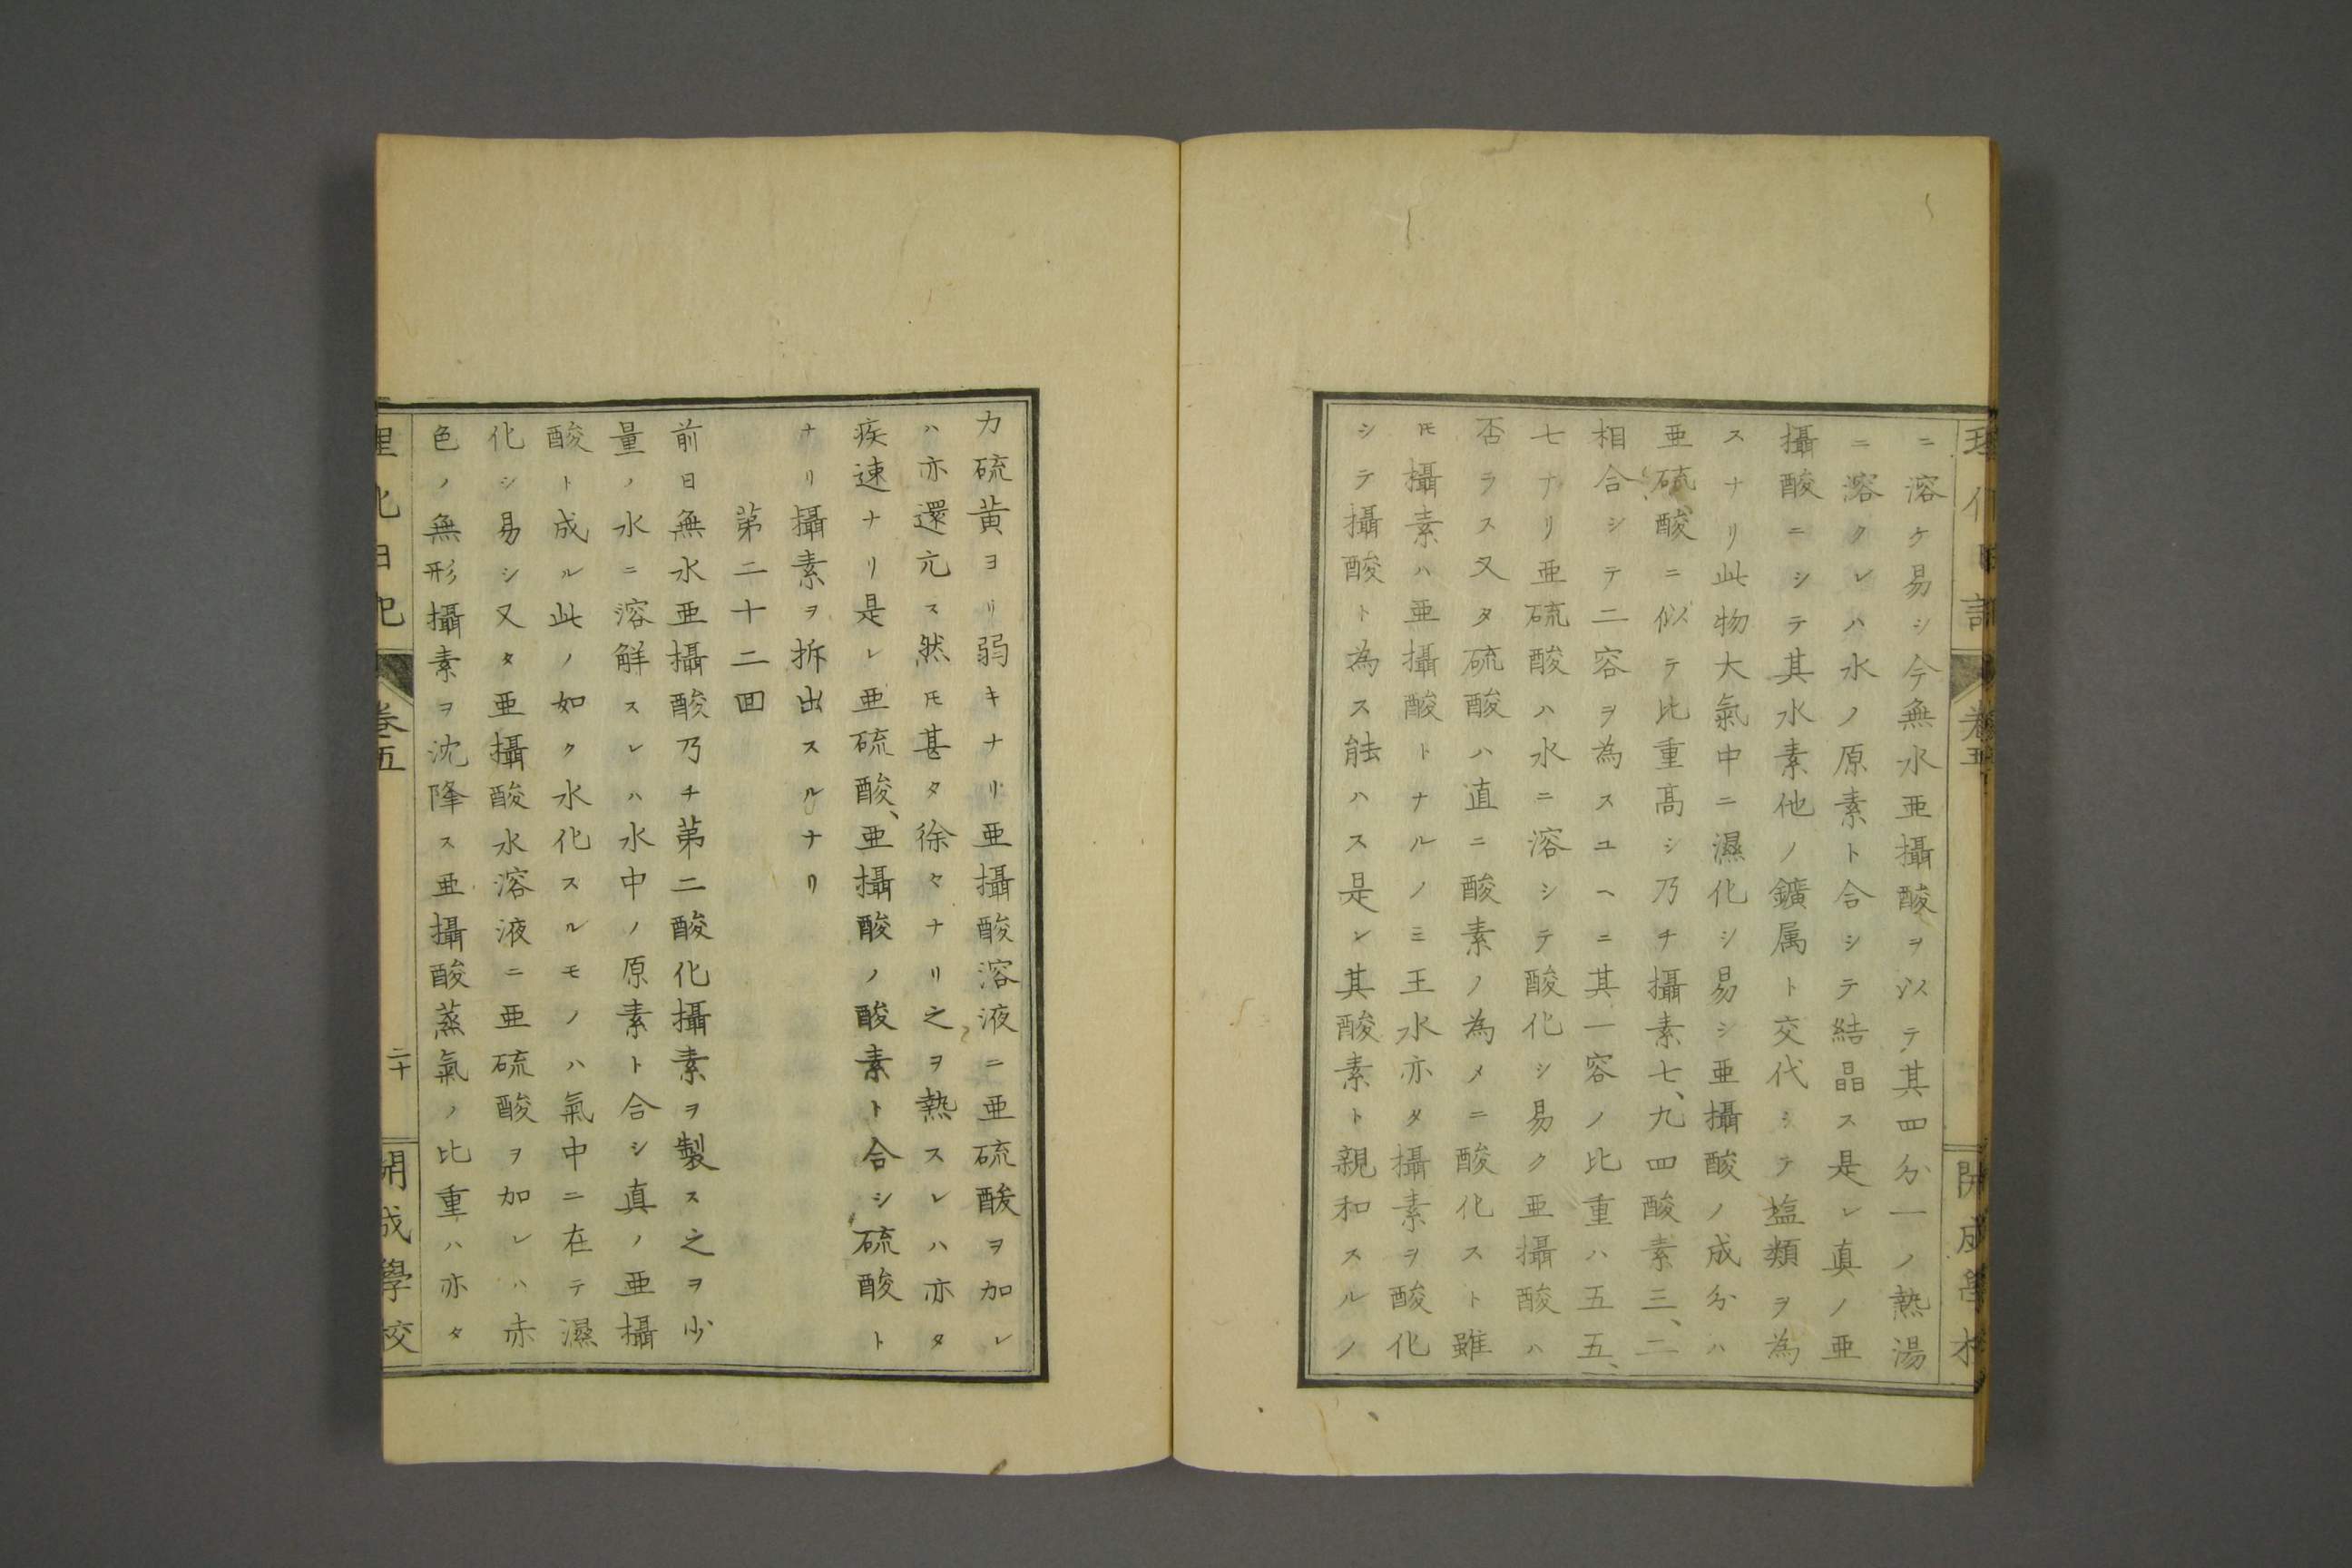 ニ溶ケ易シ今無水亜攝酸ヲ以テ其四分一ノ熱湯
ニ溶クレハ水ノ原素ト合シテ結晶ス是レ真ノ亜
攝酸ニシテ其水素他ノ鑛属ト交代シテ塩類ヲ為
スナリ此物大氣中ニ濕化シ易シ亜攝酸ノ成分ハ
亜硫酸ニ似テ比重高シ乃チ攝素七、九四酸素三、二
相合シテ二容ヲ為スユヘニ其一容ノ比重ハ五五、
七ナリ亜硫酸ハ水ニ溶シテ酸化シ易ク亜攝酸ハ
否ラス又タ硫酸ハ直ニ酸素ノ為メニ酸化スト雖
𪜈攝素ハ亜攝酸トナルノミ王水亦タ攝素ヲ酸化
シテ攝酸ト為ス能ハス是レ其酸素ト親和スルノ
理化日記 巻五 開成學校
力硫黄ヨリ弱キナリ亜攝酸溶液ニ亜硫酸ヲ加レ
ハ亦還元ス然𪜈甚タ徐々ナリ之ヲ熱スレハ亦タ
疾速ナリ是レ亜硫酸、亜攝酸ノ酸素ト合シ硫酸ト
ナリ攝素ヲ拆出スルナリ
第二十二回
前日無水亜攝酸乃チ第二酸化攝素ヲ製ス之ヲ少
量ノ水ニ溶解スレハ水中ノ原素ト合シ真ノ亜攝
酸ト成ル此ノ如ク水化スルモノハ氣中ニ在テ濕
化シ易シ又タ亜攝酸水溶液ニ亜硫酸ヲ加レハ赤
色ノ無形攝素ヲ沈降ス亜攝酸蒸氣ノ比重ハ亦タ
理化日記 巻五 二十 開成學校